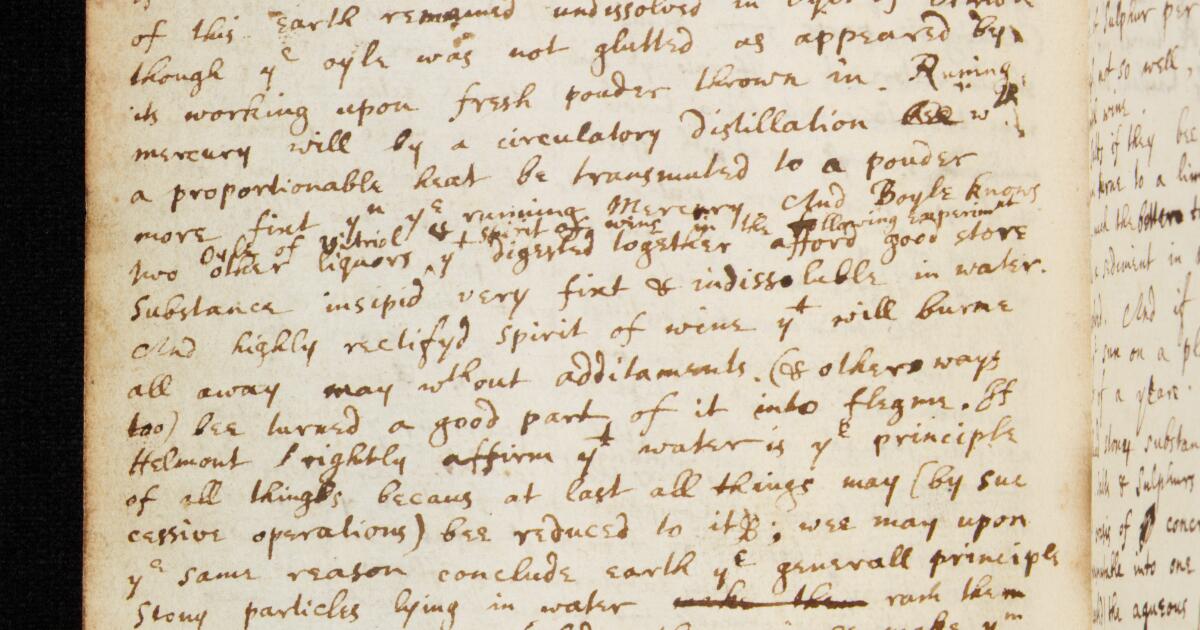 of this earth remained undissolved in
though yᵉ oyle was not glutted as appeared by
its working upon fresh pouder thrown in. Runing
mercury will by a circulatory Distillation wᵗʰ
a proportionable heat be transmuted to a pouder
more fixt yⁿ yᵉ running Mercury. And Boyle knows
Oyle of vitriol & spirit of wine in the following experimᵗ
two other liquors yᵗ digested together afford good store
Substance insipid very fixt & indissoluble in water.
And highly rectifyd Spirit of wine yᵗ will burne
all away may wthout additaments. (& other ways
too) bee turned a good part of it into flegme. If
Helmont rightly affirm yᵗ water is yᵉ principle
of all things becaus at last all things may (by suc
cessive operations) bee reduced to it; wee may upon
yᵉ same reason conclude earth yᵉ generall principle
Stony particles lying in water make them rash them
Sulphur per
not so well,
wine
if they bee
turne to a
the bottom
sediment in
And if
sun on a
of a yeare
stony substan
& Sulphurs
of conc
into one
the aqueous